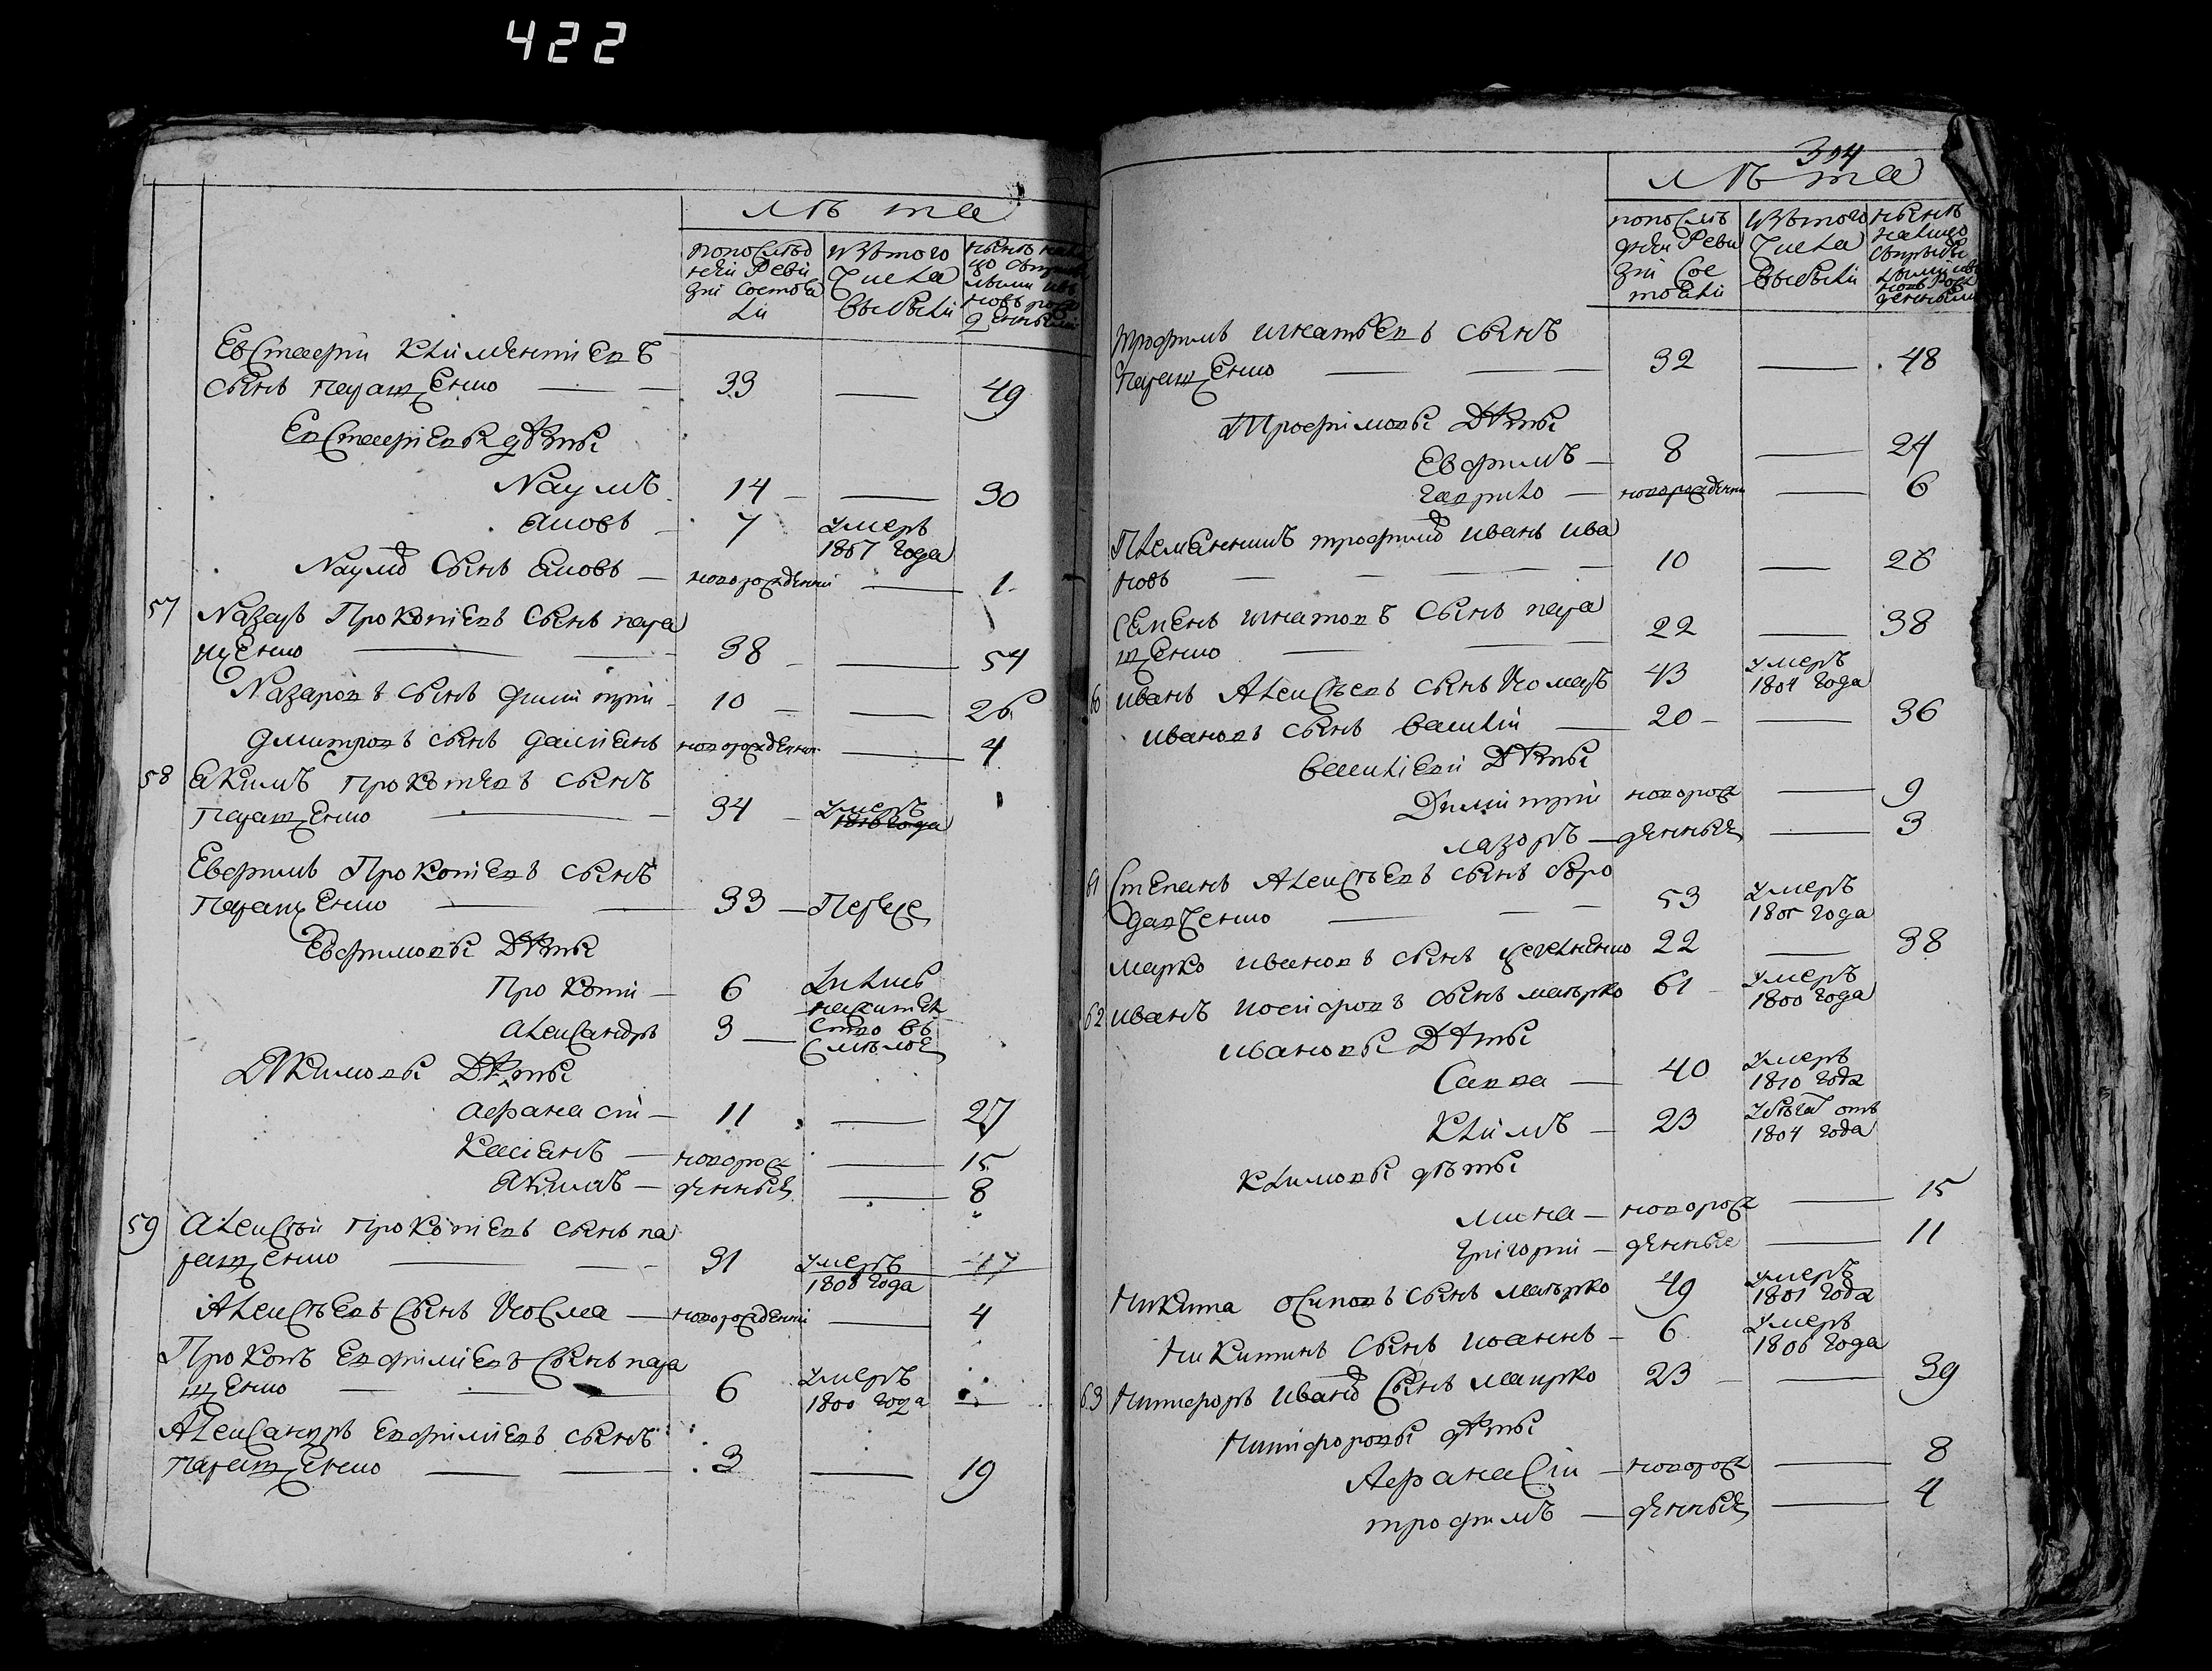 422
лѣта
по послѣд
ней Реви
зіи состоя
ли
изъ того
Числа
выбыли
Евстафій Климентіевъ
сынъ Паращенко — 33 — 49
Евстафіевы дѣты
Наумъ 14 — 30
Яковъ 7 умеръ
1807 года
Наумо Сынъ Яковъ — новорожденни — 1
57 Назаръ Прокопіевъ Сынъ пара
щенко — 38 — 54
Назаровъ сынъ Димитрій 10 — 26
Дмитровъ сынъ Даміянъ новорожденни — 4
58 Якимъ Прокопіевъ Сынъ
Паращенко — 34 — умеръ
1816 года
Евфимъ Прокопіевъ сынъ
Паращенко — 33 — Переве
Евфимовы Дѣты
Прокопій — 6
Александръ 3 —
Якимовы Дѣты
Афанасій — 11 — 27
Касіянъ — новорож — 15
Якимъ — денные — 8
59 Алексѣй Прокопіевъ Сынъ па
ращенко — 31 умеръ 47
1808 года
Алексѣевъ Сынъ Косма — новорожденни — 4
Прокопъ Евфиміевъ Сынъ пара
щенко — 6 умеръ
1800 года
Александръ Евфиміевъ сынъ
Паращенко — 3 — 19
394
лѣта
по послѣ
дней Реви
зіи Сос
тояли
изъ того
Числа
выбыли
Трофимъ Игнатьевъ Сынъ
Паращенко — 32 — 48
Трофимовы Дѣты
Евфимъ — 8 — 24
Гаврило — новорожденни — 6
Племянникъ трофимо Иванъ Ива
новъ — 10 — 26
Семенъ Игнатовъ Сынъ пара
щенко — 22 — 38
60 Иванъ Алексѣевъ сынъ Комаръ 43 умеръ
1804 года
Ивановъ Сынъ Василій — 20 — 36
Василіевы Дѣты
Димитрій новорож — 9
Лазоръ — денные — 3
61 Степанъ Алексѣевъ сынъ Боро
давченко — 53 умеръ
1805 года
Марко Ивановъ сынъ 22 — 38
62 Иванъ Іосифовъ Сынъ 61 умеръ
1800 года
Ивановы Дѣты
Савва — 40 умеръ
1810 года
Климъ — 23
1804 года
Климовы дѣты
Мина — новорож — 15
Григорій — денные — 11
Никита Осиповъ Сынъ 49 умеръ
1801 года
Никитинъ Сынъ Иоаннъ — 6 умеръ
1806 года
63 Никифоръ Ивано Сынъ 23 — 39
Никифоровы дѣты
Афанасій — новорож — 8
трофимъ — денные — 4